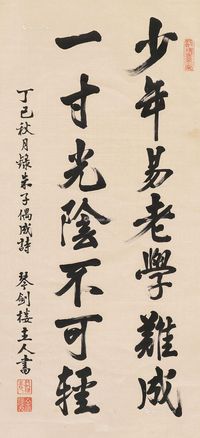 少年易老學難成
一寸光陰不可輕
丁已秋月錄朱子偶成詩 琴劍樓主人書